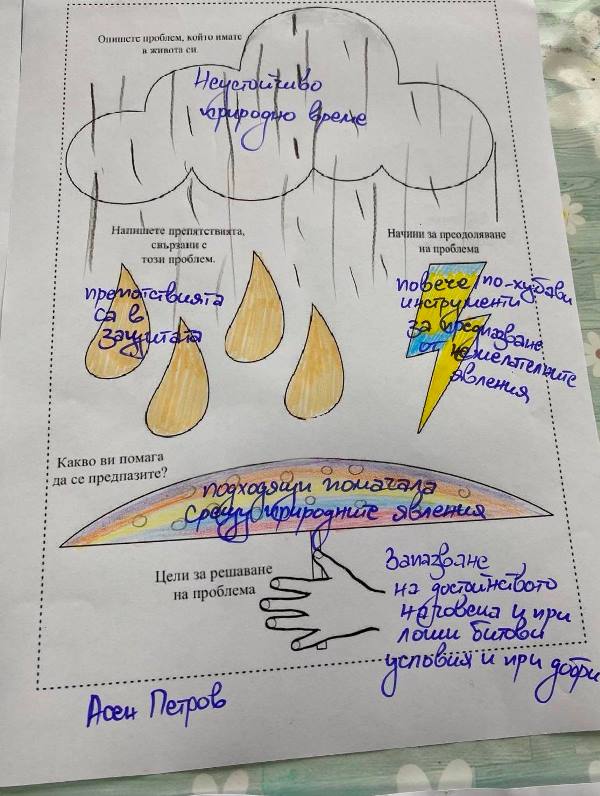 Опишете проблем, който имате
в живота си.
Неустойчиво
природно време
Напишете препятствията,
свързани с
този проблем.
Начини за преодоляване
на проблема
препотствията
са в
защитата
повече по-хубави
инструменти
за предпазване
от нежелателните
явления
Какво ви помага
да се предпазите?
подходящи помагала
срещу природните явления
Цели за решаване
на проблема
Запазване
на достойнството
на човека и при
лоши битови
условия и при добри
Асен Петров